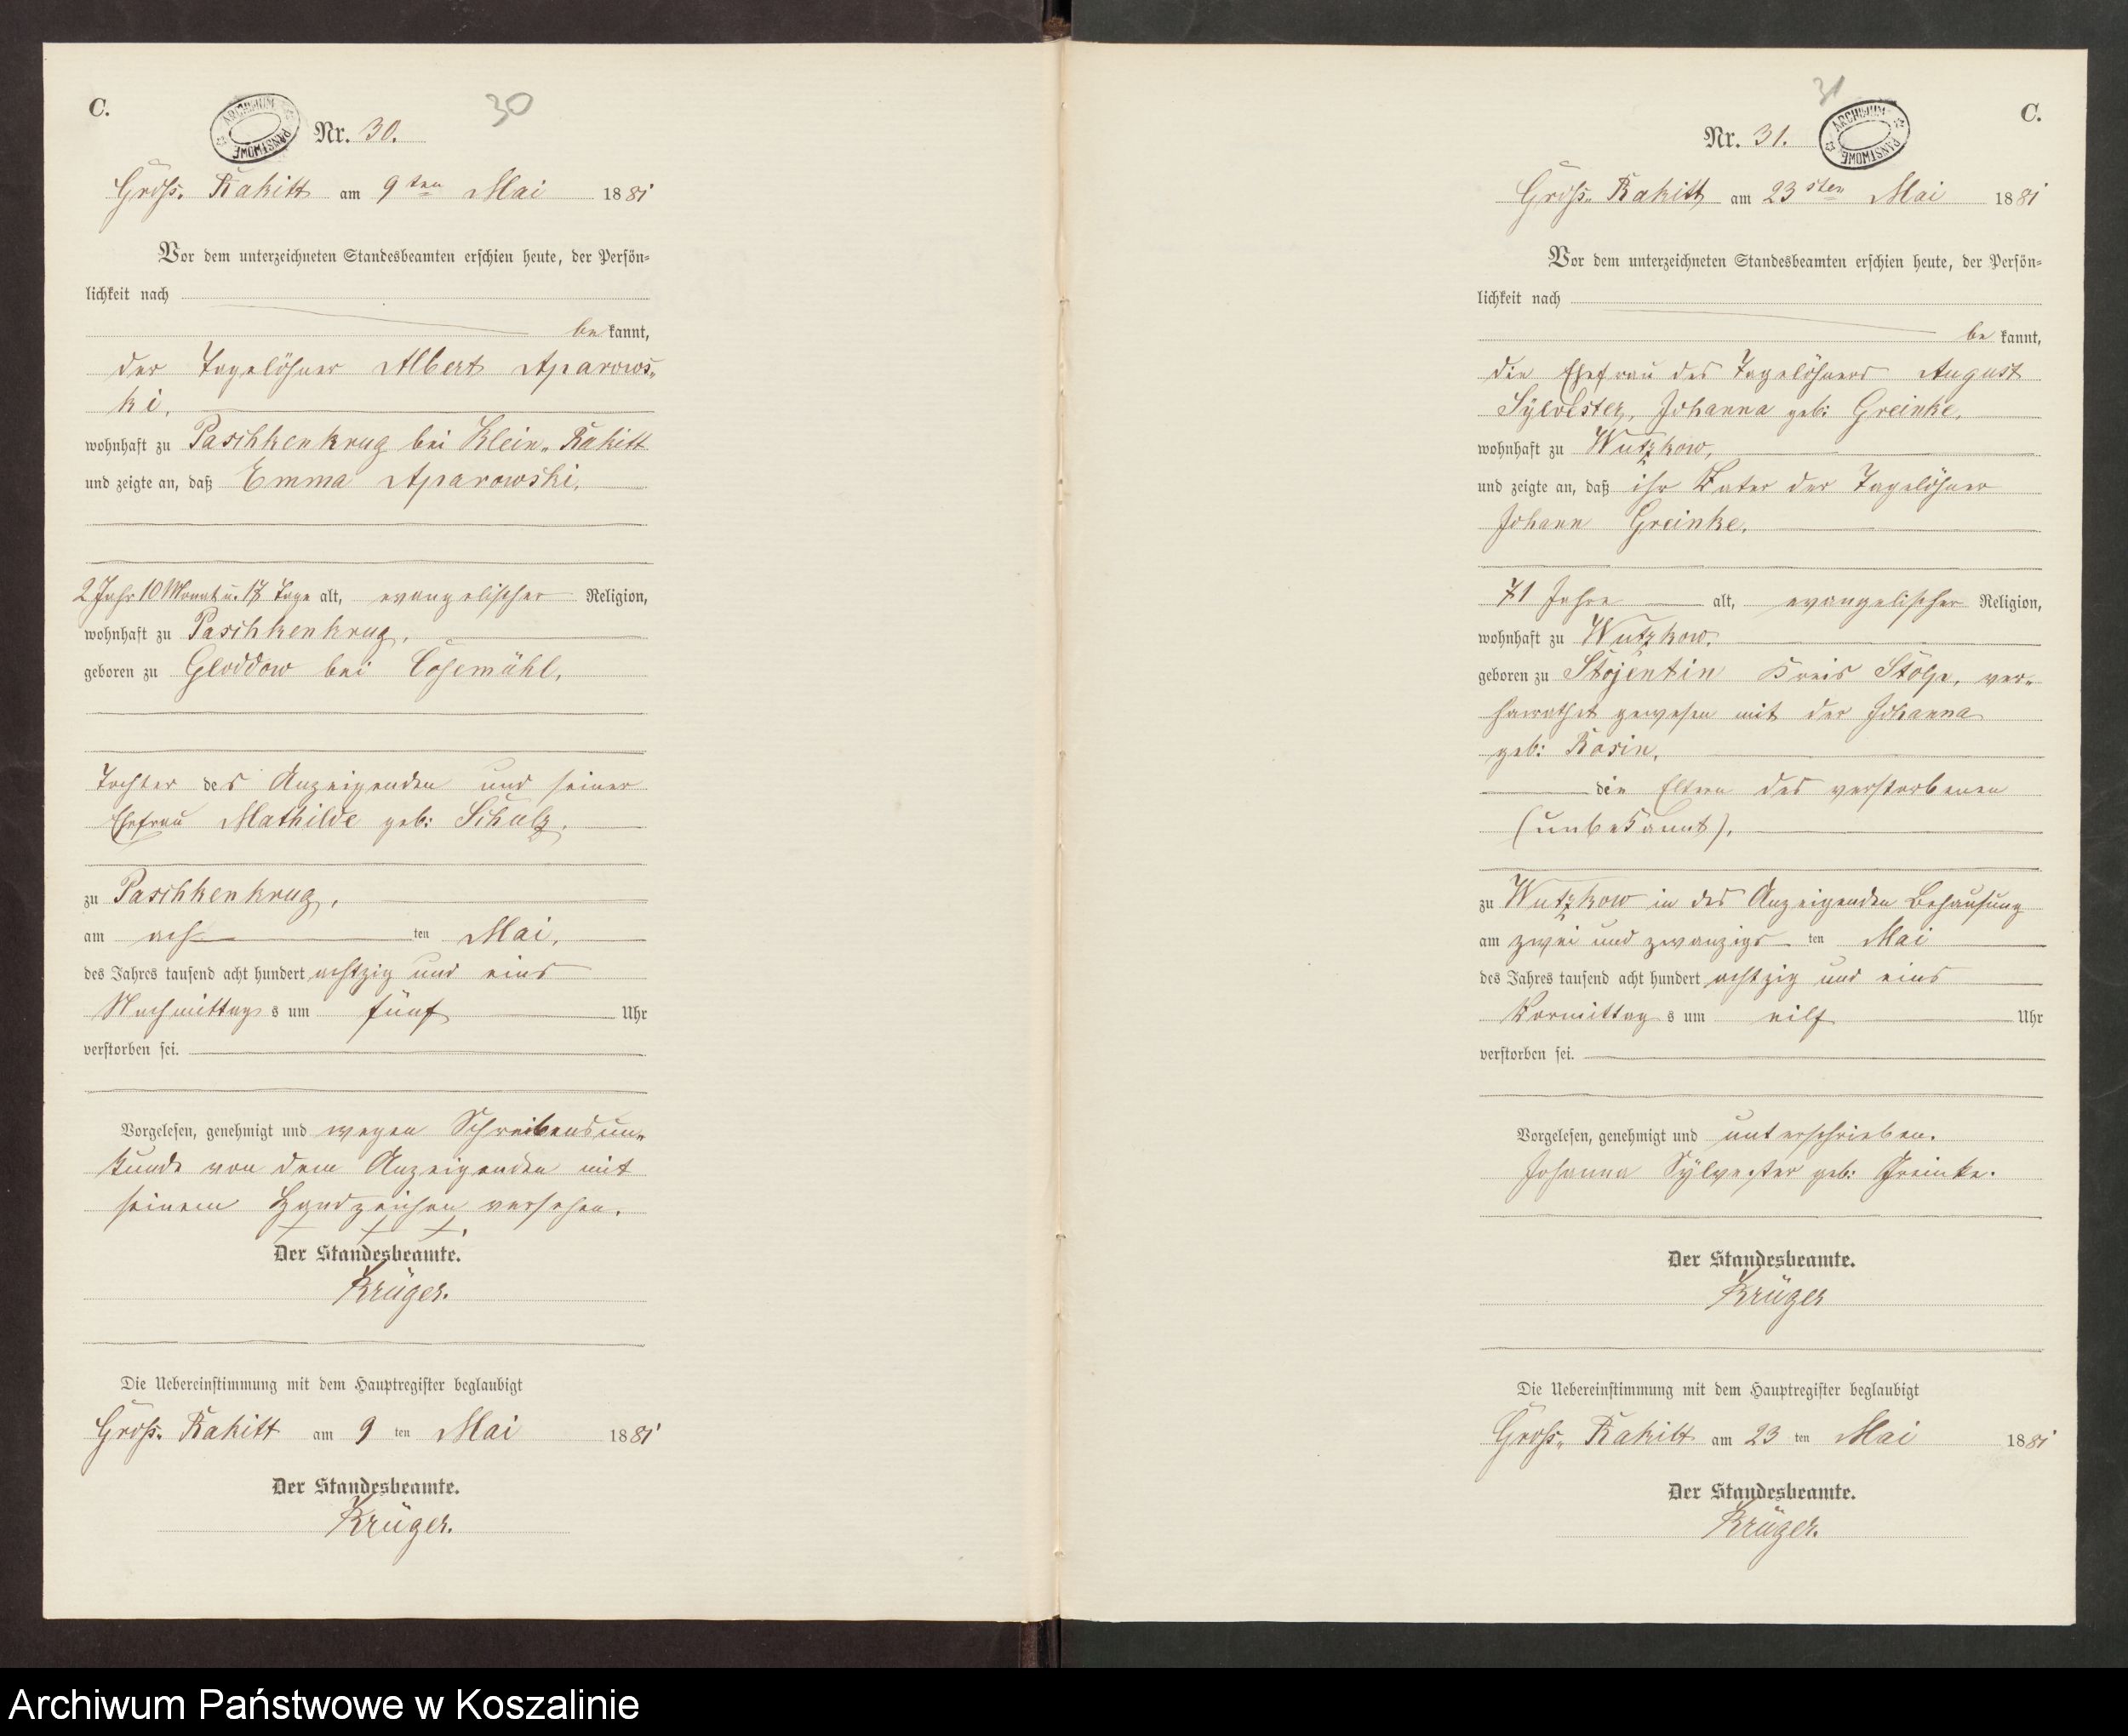 C.
ARCHIWUM PAŃSTWOWE
30
Nr. 30.
Groß. Rakitt am 9ten Mai 1881
Vor dem unterzeichneten Standesbeamten erschien heute, der Persön-
lichkeit nach
bekannt,
der Tagelöhner Albert Aparows-
ki,
wohnhaft zu Paschkenkrug bei Klein-Rakitt
und zeigte an, daß Emma Aparowski,
2 Jahr 10 Monat u. 17 Tage alt, evangelischer Religion,
wohnhaft zu Paschkenkrug,
geboren zu Gloddow bei Cosemühl,
Tochter des Anzeigenden und seiner
Ehefrau Mathilde geb: Schulz,
zu Paschkenkrug,
am ach ten Mai,
des Jahres tausend acht hundert achtzig und eins
Nachmittags um fünf Uhr
verstorben sei.
Vorgelesen, genehmigt und wegen Schreibensun-
kunde von dem Anzeigenden mit
seinem Handzeichen versehen.
+ + +.
Der Standesbeamte.
Krüger.
Die Uebereinstimmung mit dem Hauptregister beglaubigt
Groß. Rakitt am 9 ten Mai 1881
Der Standesbeamte.
Krüger.
31
C.
Nr. 31.
ARCHIWUM PAŃSTWOWE
Groß-Rakitt am 23sten Mai 1881
Vor dem unterzeichneten Standesbeamten erschien heute, der Persön-
lichkeit nach
bekannt,
die Ehefrau des Tagelöhners August
Sylvester, Johanna geb: Greinke,
wohnhaft zu Wutzkow,
und zeigte an, daß ihr Vater der Tagelöhner
Johann Greinke,
71 Jahre alt, evangelischer Religion,
wohnhaft zu Wutzkow,
geboren zu Stojentin Kreis Stolp, ver-
heirathet gewesen mit der Johanna
geb: Rosin,
die Eltern des verstorbenen
(unbekannt),
zu Wutzkow in des Anzeigenden Behausung
am zwei und zwanzigs ten Mai
des Jahres tausend acht hundert achtzig und eins
Vormittags um eilf Uhr
verstorben sei.
Vorgelesen, genehmigt und unterschrieben.
Johanna Sylvester geb: Greinke.
Der Standesbeamte.
Krüger
Die Uebereinstimmung mit dem Hauptregister beglaubigt
Groß-Rakitt am 23 ten Mai 1881
Der Standesbeamte.
Krüger.
Archiwum Państwowe w Koszalinie